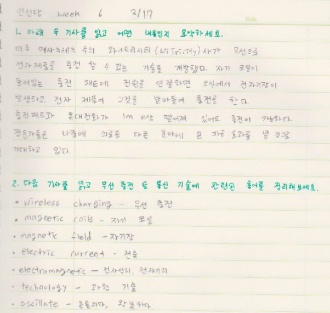 week 6 3/17
1. 아래 두 기사를 읽고 어떤 내용인지 요약하세요.
미국 매사추세츠 주의 와이트리시티(WiTricity)사가 무선으로
전자제품을 충전 할 수 있는 기술을 개발했다. 자기 코일이
들어있는 충전 패드에 전원을 연결하면 코일에서 전자기장이
발생하고 전자 제품이 그것을 받아들여 충전을 한다.
충전패드와 휴대전화가 1m 이상 떨어져 있어도 충전이 가능하다.
전문가들은 나중에 의료용 다른 분야에 큰 효과를 낼 것을
기대하고 있다.
2. 다음 기사를 읽고 무선 충전 및 통신 기술에 관련된 용어를 정리해보세요.
• wireless charging - 무선 충전
• magnetic coils - 자기 코일
• magnetic field - 자기장
• electric current - 전류
• electromagnetic - 전자석의, 전자기의
• technology - 과학 기술
• oscillate - 진동하다, 왕복하다